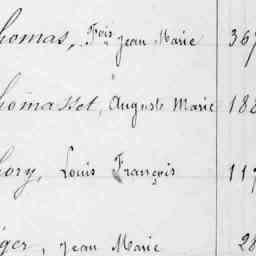 homas, Fois Jean Marie 367
homasset, Auguste Marie 188
hory, Louis François 117
ger, Jean Marie 28